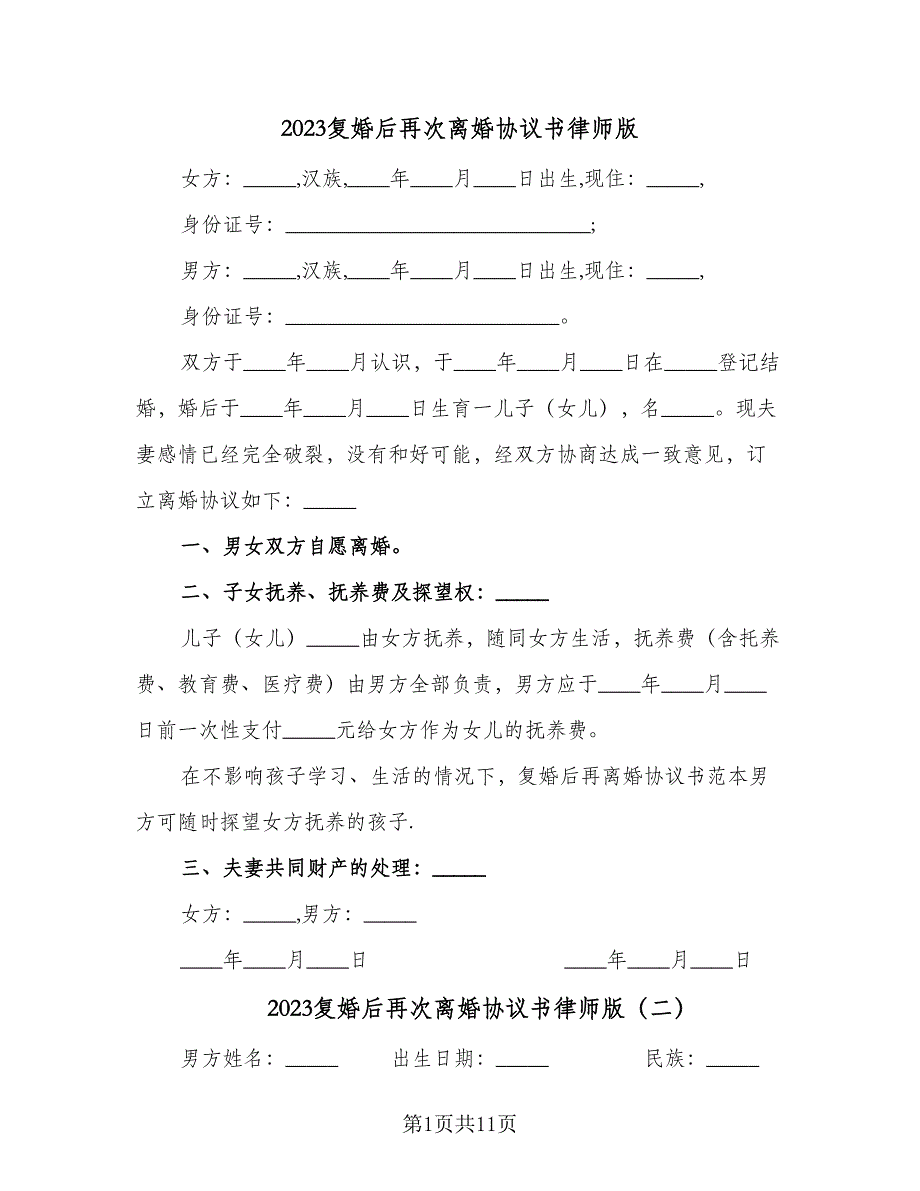 2023复婚后再次离婚协议书律师版
女方：_____,汉族,____年____月____日出生,现住：_____,
身份证号：_____________________________;
男方：_____,汉族,____年____月____日出生,现住：_____,
身份证号：__________________________。
双方于____年____月认识，于____年____月____日在_____登记结
婚，婚后于____年____月____日生育一儿子（女儿），名_____。现夫
妻感情已经完全破裂，没有和好可能，经双方协商达成一致意见，订
立离婚协议如下：_____
一、男女双方自愿离婚。
二、子女抚养、抚养费及探望权：_____
儿子（女儿）_____由女方抚养，随同女方生活，抚养费（含托养
费、教育费、医疗费）由男方全部负责，男方应于____年____月____
日前一次性支付_____元给女方作为女儿的抚养费。
在不影响孩子学习、生活的情况下，复婚后再离婚协议书范本男
方可随时探望女方抚养的孩子.
三、夫妻共同财产的处理：_____
女方：_____,男方：_____
____年____月____日 ____年____月____日
2023复婚后再次离婚协议书律师版（二）
男方姓名：_____ 出生日期：_____ 民族：_____
第1页共11页